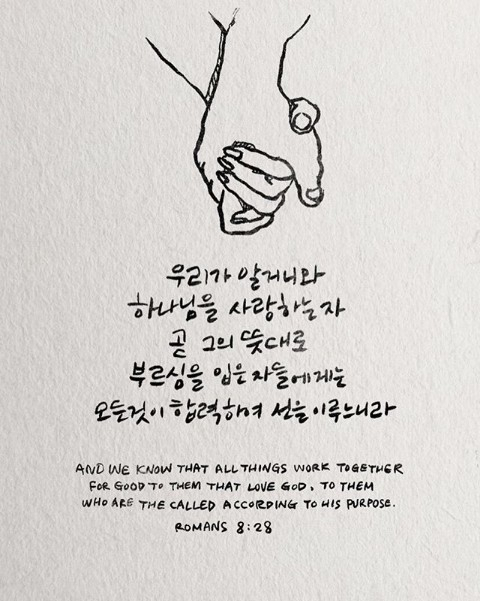 우리가 알거니와
하나님을 사랑하는 자
곧 그의 뜻대로
부르심을 입은 자들에게는
모든것이 합력하여 선을 이루느니라
AND WE KNOW THAT ALL THINGS WORK TOGETHER
FOR GOOD TO THEM THAT LOVE GOD, TO THEM
WHO ARE THE CALLED ACCORDING TO HIS PURPOSE.
ROMANS 8:28